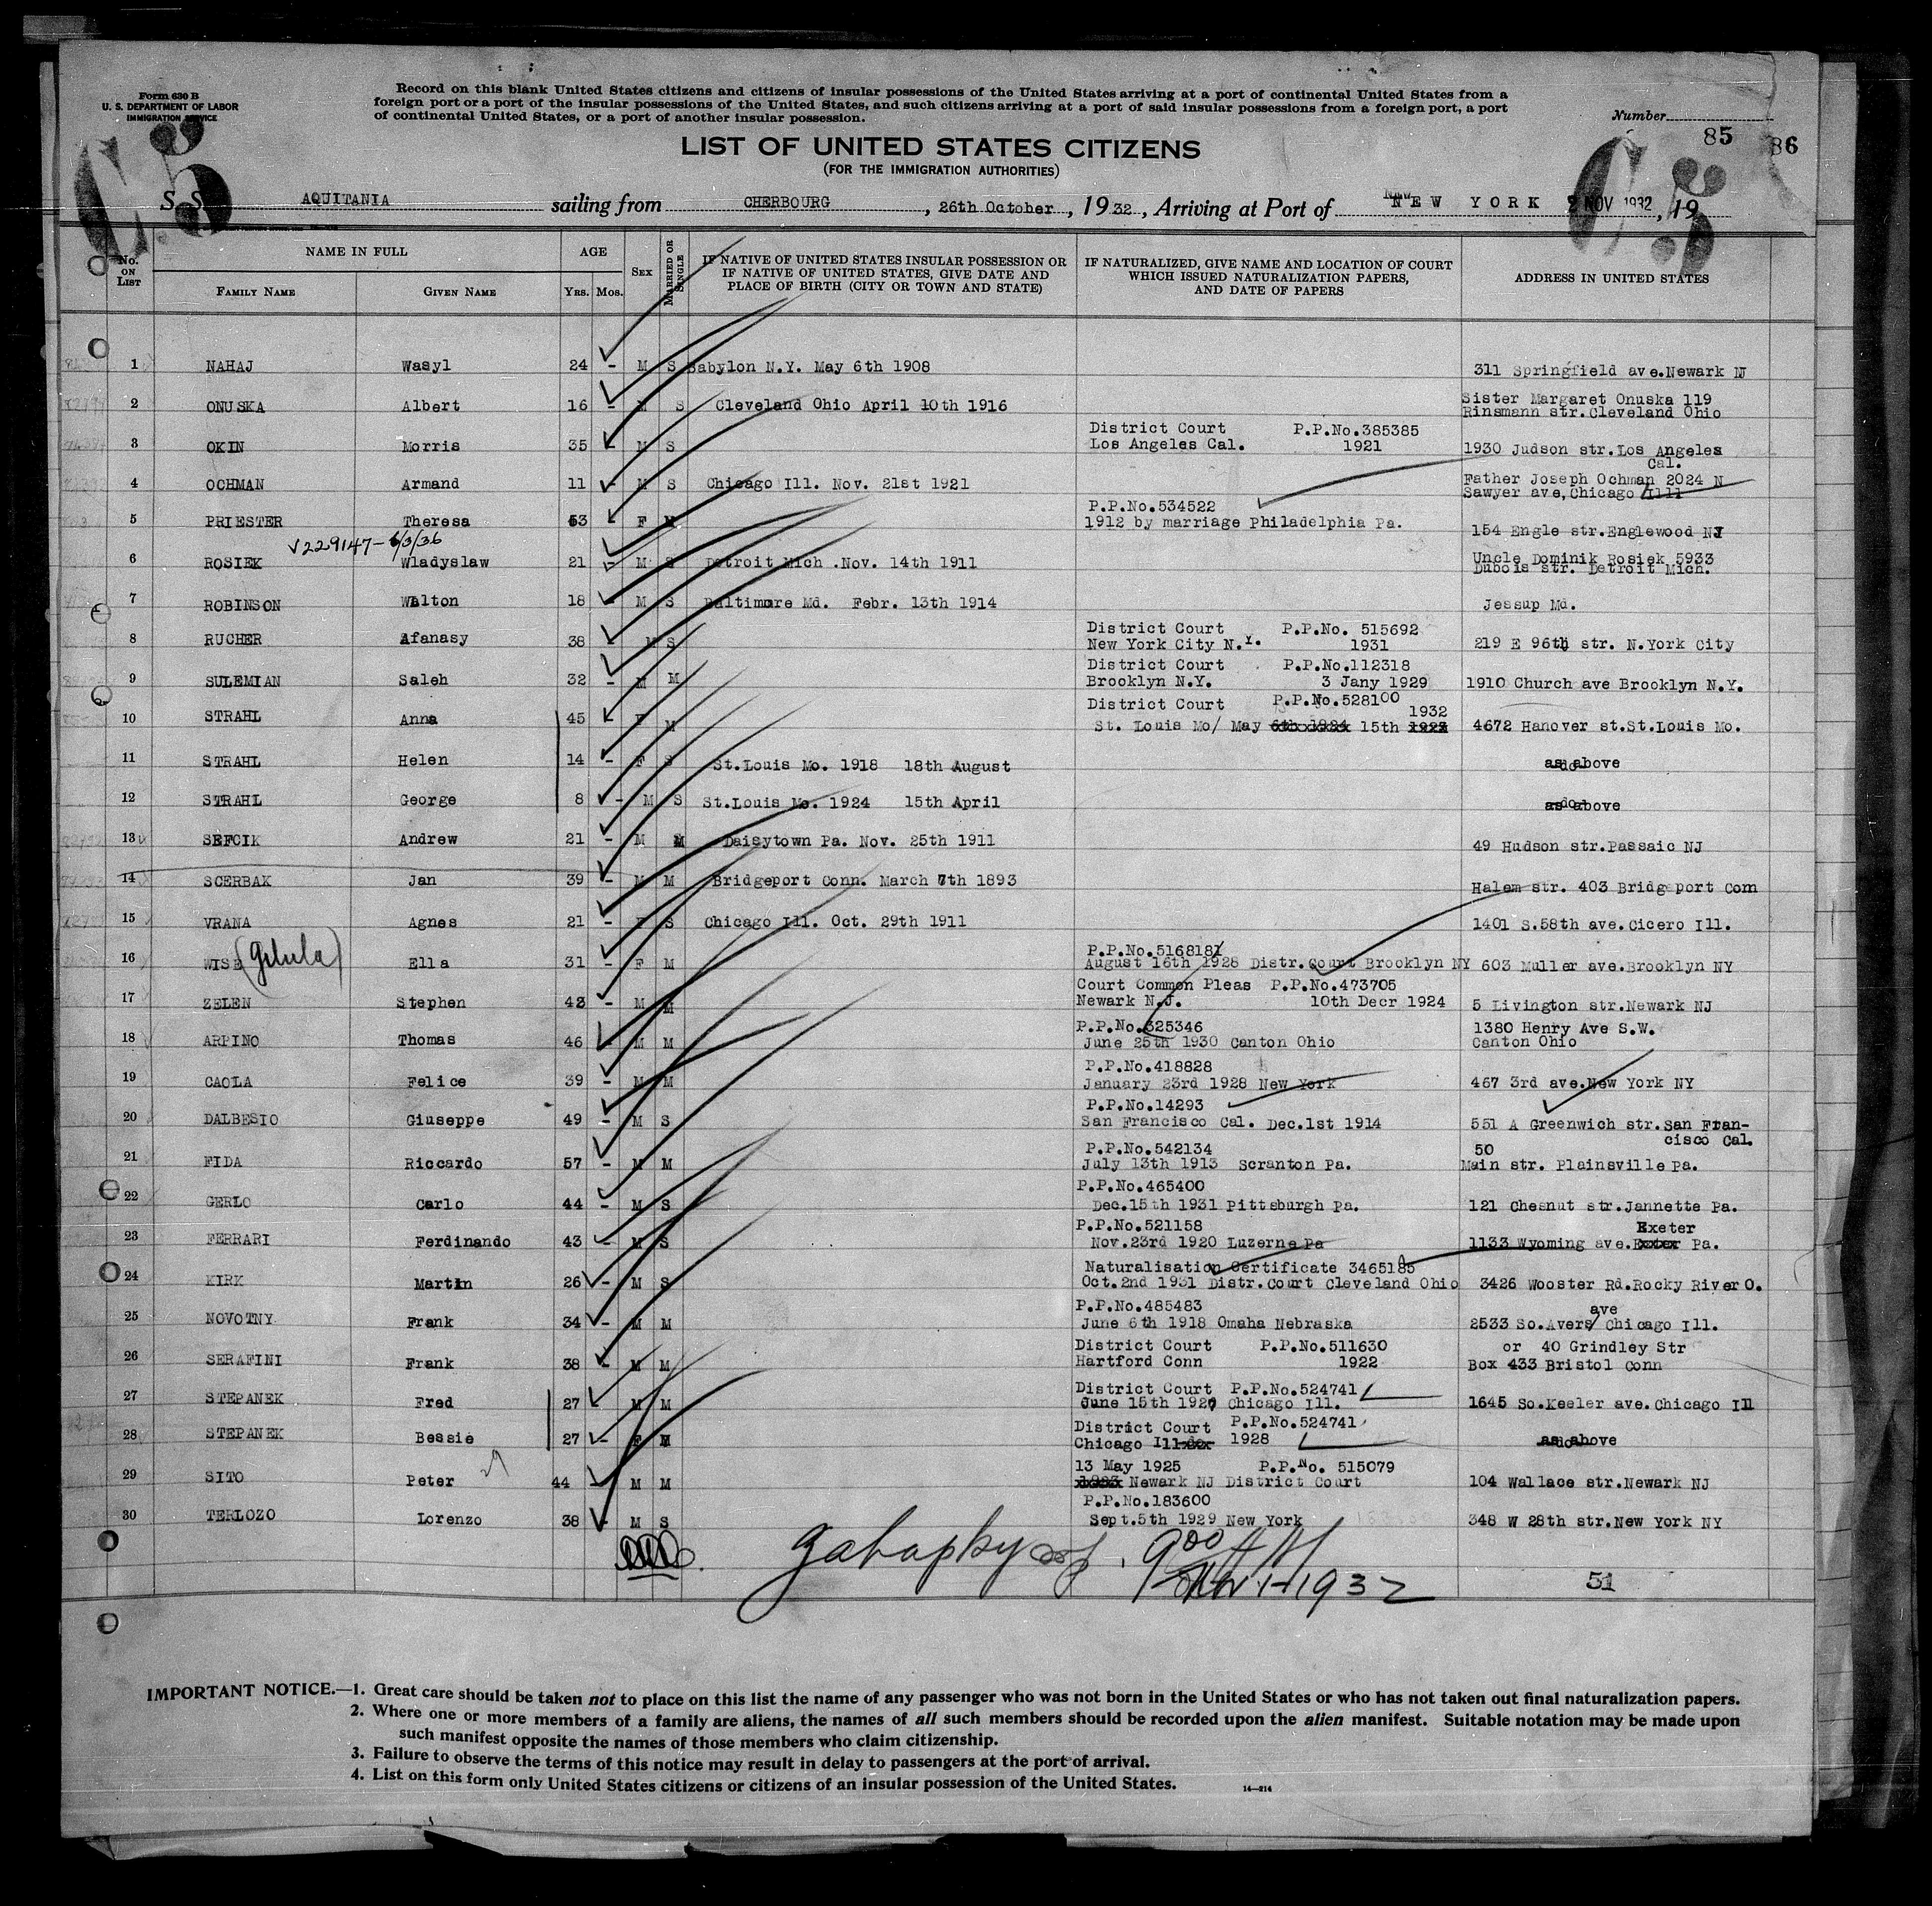 Form 630 B
U. S. DEPARTMENT OF LABOR
IMMIGRATION SERVICE
Record on this blank United States citizens and citizens of insular possessions of the United States arriving at a port of continental United States from a
foreign port or a port of the insular possessions of the United States, and such citizens arriving at a port of said insular possessions from a foreign port, a port
of continental United States, or a port of another insular possession.
Number
85
86
LIST OF UNITED STATES CITIZENS
(FOR THE IMMIGRATION AUTHORITIES)
C5
C5
S. S. AQUITANIA sailing from CHERBOURG, 26th October, 1932, Arriving at Port of NEW YORK 2 NOV 1932, 19
No. ON LIST
NAME IN FULL
FAMILY NAME GIVEN NAME
AGE
YRS. MOS.
SEX
MARRIED OR SINGLE
IF NATIVE OF UNITED STATES INSULAR POSSESSION OR
IF NATIVE OF UNITED STATES, GIVE DATE AND
PLACE OF BIRTH (CITY OR TOWN AND STATE)
IF NATURALIZED, GIVE NAME AND LOCATION OF COURT
WHICH ISSUED NATURALIZATION PAPERS,
AND DATE OF PAPERS
ADDRESS IN UNITED STATES
1 NAHAJ Wasyl 24 - M S Babylon N.Y. May 6th 1908 311 Springfield ave.Newark NJ
2 ONUSKA Albert 16 - M S Cleveland Ohio April 10th 1916 Sister Margaret Onuska 119
Rinsmann str.Cleveland Ohio
District Court P.P.No.385385
3 OKIN Morris 35 - M S Los Angeles Cal. 1921 1930 Judson str.Los Angeles
Cal.
4 OCHMAN Armand 11 - M S Chicago Ill. Nov. 21st 1921 Father Joseph Ochman 2024 N
Sawyer ave,Chicago Ill
P.P.No.534522
5 PRIESTER Theresa 53 - F M 1912 by marriage Philadelphia Pa. 154 Engle str.Englewood NJ
V229147-6/3/36
6 ROSIEK Wladyslaw 21 - M S Detroit Mich .Nov. 14th 1911 Uncle Dominik Rosiek 5933
Dubois str. Detroit Mich.
7 ROBINSON Walton 18 - M S Baltimore Md. Febr. 13th 1914 Jessup Md.
District Court P.P.No. 515692
8 RUCHER Afanasy 38 - M S New York City N.Y. 1931 219 E 96th str. N.York City
District Court P.P.No.112318
9 SULEMIAN Saleh 32 - M M Brooklyn N.Y. 3 Jany 1929 1910 Church ave Brooklyn N.Y.
District Court P.P.No.528100
1932
10 STRAHL Anna 45 - F M St. Louis Mo/ May 6th 1924 15th 1927 4672 Hanover st.St.Louis Mo.
11 STRAHL Helen 14 - F S St.Louis Mo. 1918 18th August as above
12 STRAHL George 8 - M S St.Louis Mo. 1924 15th April as above
13 SEFCIK Andrew 21 - M M Daisytown Pa. Nov. 25th 1911 49 Hudson str.Passaic NJ
14 SCERBAK Jan 39 - M M Bridgeport Conn. March 7th 1893 Halem str. 403 Bridgeport Conn
15 VRANA Agnes 21 - F S Chicago Ill. Oct. 29th 1911 1401 S.58th ave.Cicero Ill.
P.P.No.5168181
16 WISE (Gelula) Ella 31 - F M August 16th 1928 Distr.Court Brooklyn NY 603 Muller ave.Brooklyn NY
Court Common Pleas P.P.No.473705
17 ZELEN Stephen 43 - M M Newark N.J. 10th Decr 1924 5 Livington str.Newark NJ
P.P.No.325346 1380 Henry Ave S.W.
18 ARPINO Thomas 46 - M M June 25th 1930 Canton Ohio Canton Ohio
P.P.No.418828
19 CAOLA Felice 39 - M M January 23rd 1928 New York 467 3rd ave.New York NY
P.P.No.14293
20 DALBESIO Giuseppe 49 - M S San Francisco Cal. Dec.1st 1914 551 A Greenwich str.San Fran-
cisco Cal.
P.P.No.542134 50
21 FIDA Riccardo 57 - M M July 13th 1913 Scranton Pa. Main str. Plainsville Pa.
P.P.No.465400
22 GERLO Carlo 44 - M S Dec.15th 1931 Pittsburgh Pa. 121 Chesnut str.Jannette Pa.
P.P.No.521158 Exeter
23 FERRARI Ferdinando 43 - M S Nov.23rd 1920 Luzerne Pa 1133 Wyoming ave. Pa.
Naturalisation Certificate 3465185
24 KIRK Martin 26 - M S Oct.2nd 1931 Distr.Court Cleveland Ohio 3426 Wooster Rd.Rocky River O.
P.P.No.485483 ave
25 NOVOTNY Frank 34 - M M June 6th 1918 Omaha Nebraska 2533 So.Avers/ Chicago Ill.
District Court P.P.No.511630 or 40 Grindley Str
26 SERAFINI Frank 38 - M M Hartford Conn 1922 Box 433 Bristol Conn
District Court P.P.No.524741
27 STEPANEK Fred 27 M M June 15th 1927 Chicago Ill. 1645 So.Keeler ave.Chicago Ill
District Court P.P.No.524741
28 STEPANEK Bessie 27 - F M Chicago Ill 1928 as above
13 May 1925 P.P.No. 515079
29 SITO Peter 44 M M Newark NJ District Court 104 Wallace str.Newark NJ
P.P.No.183600
30 TERLOZO Lorenzo 38 - M S Sept.5th 1929 New York 348 W 28th str.New York NY
9 00 AM
1932
51
IMPORTANT NOTICE.—1. Great care should be taken not to place on this list the name of any passenger who was not born in the United States or who has not taken out final naturalization papers.
2. Where one or more members of a family are aliens, the names of all such members should be recorded upon the alien manifest. Suitable notation may be made upon
such manifest opposite the names of those members who claim citizenship.
3. Failure to observe the terms of this notice may result in delay to passengers at the port of arrival.
4. List on this form only United States citizens or citizens of an insular possession of the United States.
14—214